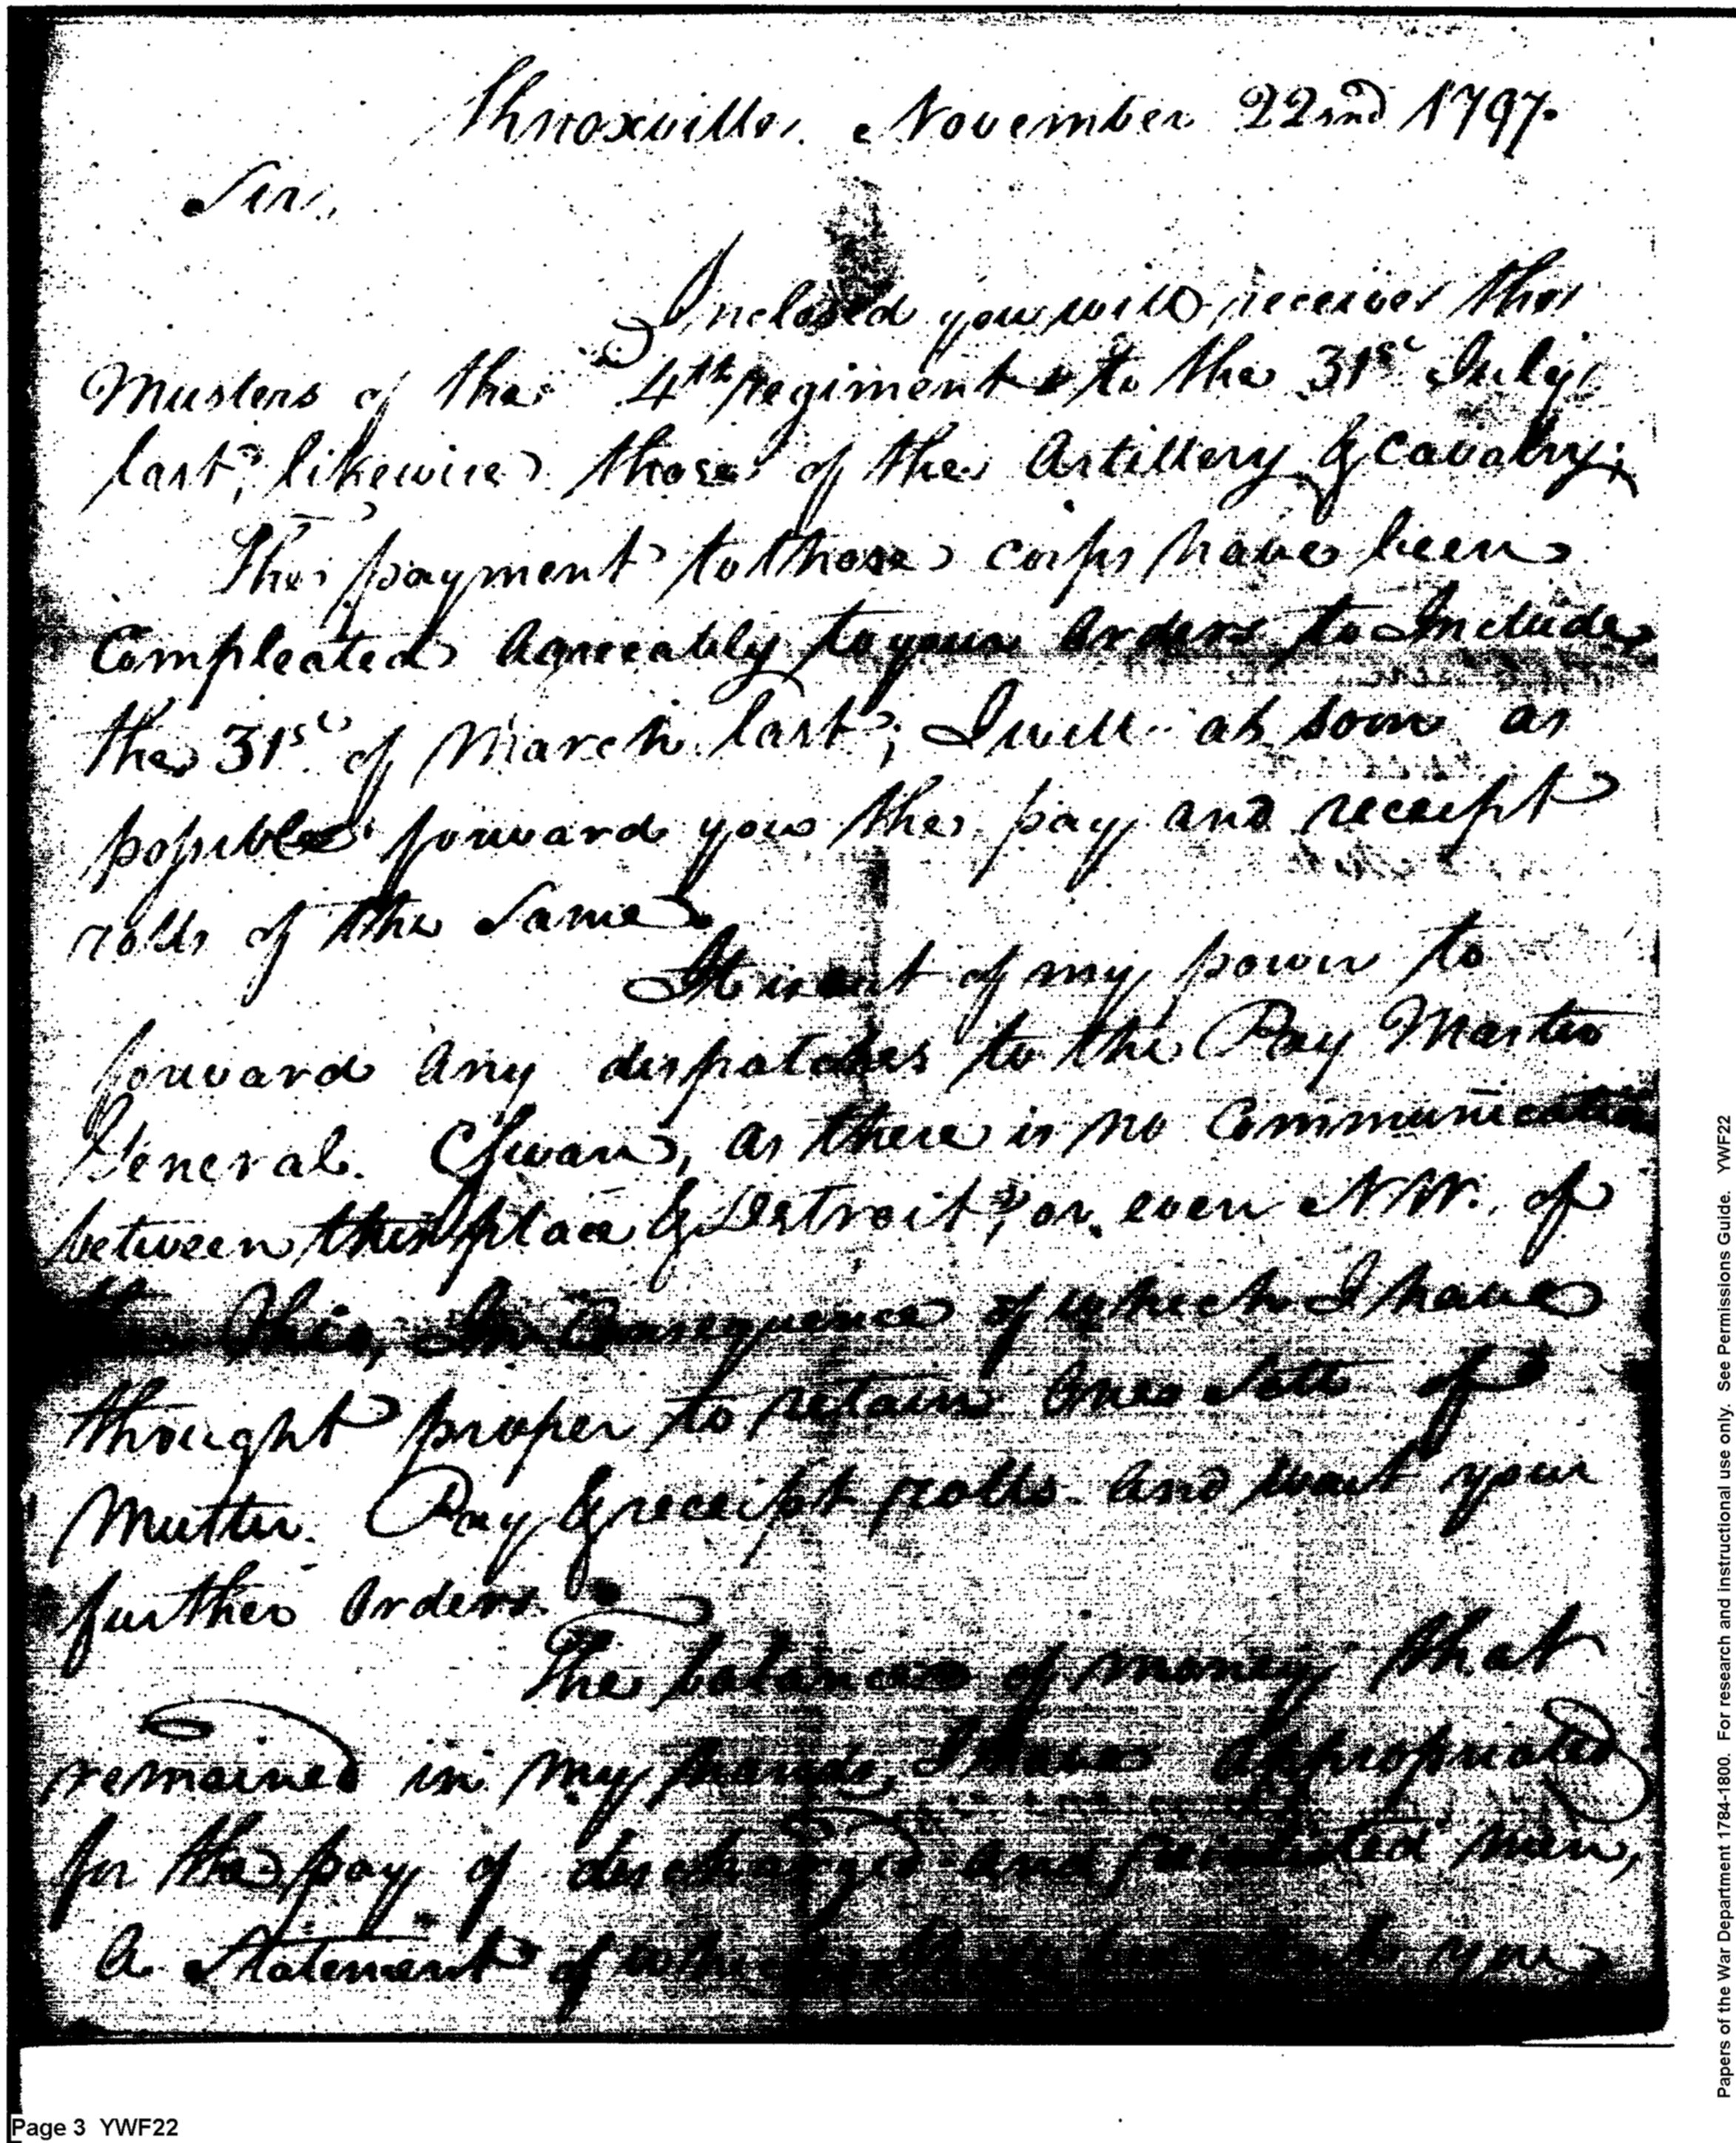 Knoxville, November 22nd 1797.
Sir,
Inclosed you will receive the
Musters of the 4th regiment to the 31st July
last, likewise those of the Artillery & Cavalry;
The payment to those corps have been
Compleated Agreeably to your Orders to Include
the 31st of March last; I will as soon as
possible forward you the pay and receipt
rolls of the Same.
It is out of my power to
forward Any dispatches to the Pay Master
General. C Swan, as there is no Communication
between this place & Detroit, or even N W. of
the Ohio, In Consequence of which I have
thought proper to retain One Sett of
Muster. Pay & receipt rolls and wait your
further Orders.
The balance of money that
remained in my hands, I have Appropriated
for the pay of discharged and men,
A Statement of which you
Page 3 YWF22
Papers of the War Department 1784-1800. For research and instructional use only. See Permissions Guide. YWF22